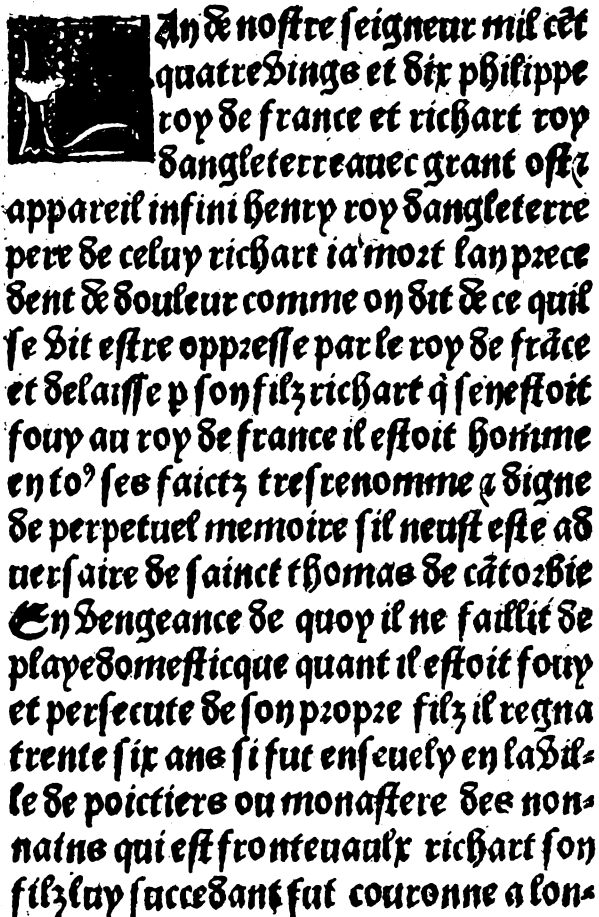 LAn de nostre seigneur mil cēt
quatre vings et dix philippe
roy de france et richart roy
dangleterre auec grant ost ⁊
appareil infini henry roy dangleterre
pere de celuy richart ia mort lan prece
dent de douleur comme on dit de ce quil
se vit estre oppresse par le roy de frāce
et delaisse ꝑ son filz richart q̇ sen estoit
fouy au roy de france il estoit homme
en toꝰ ses faictz tresrenomme ⁊ digne
de perpetuel memoire sil neust este ad
uersaire de sainct thomas de cātorbie
En vengeance de quoy il ne faillit de
playe domesticque quant il estoit fouy
et persecute de son propre filz il regna
trente six ans si fut enseuely en la vil-
le de poictiers ou monastere des non-
nains qui est fronteuaulx richart son
filz luy succedant fut couronne a lon-